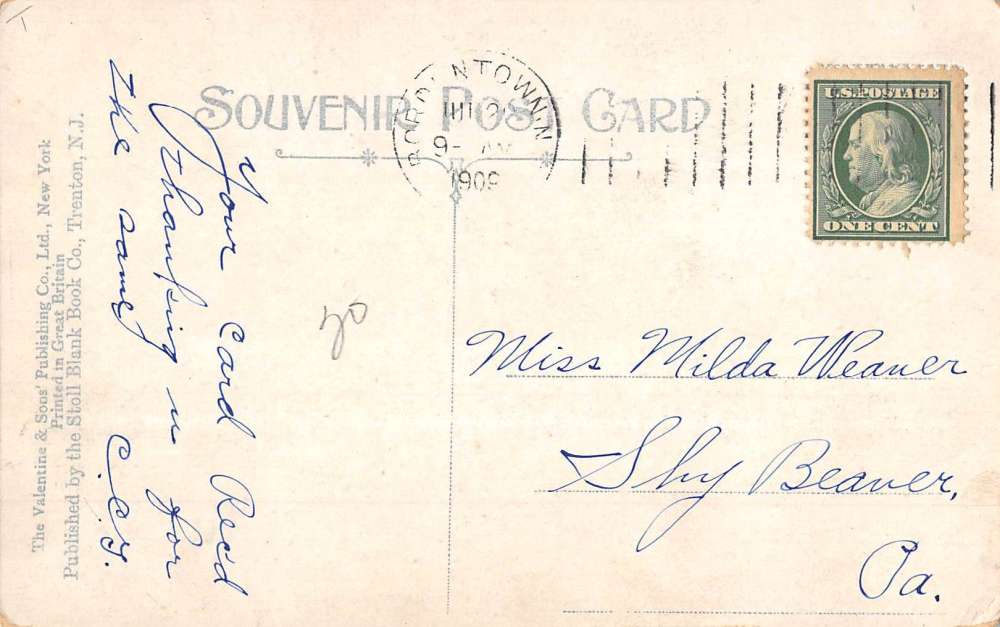 SOUVENIR POST CARD
BORDENTOWN, N.J.
9- AM
1909
U.S. POSTAGE
ONE CENT
Your card Rec'd
Thanking u for
the same
C.C.Y.
20
Miss Milda Weaver
Shy Beaver,
Pa.
The Valentine & Sons' Publishing Co., Ltd., New York
Printed in Great Britain
Published by the Stoll Blank Book Co., Trenton, N.J.